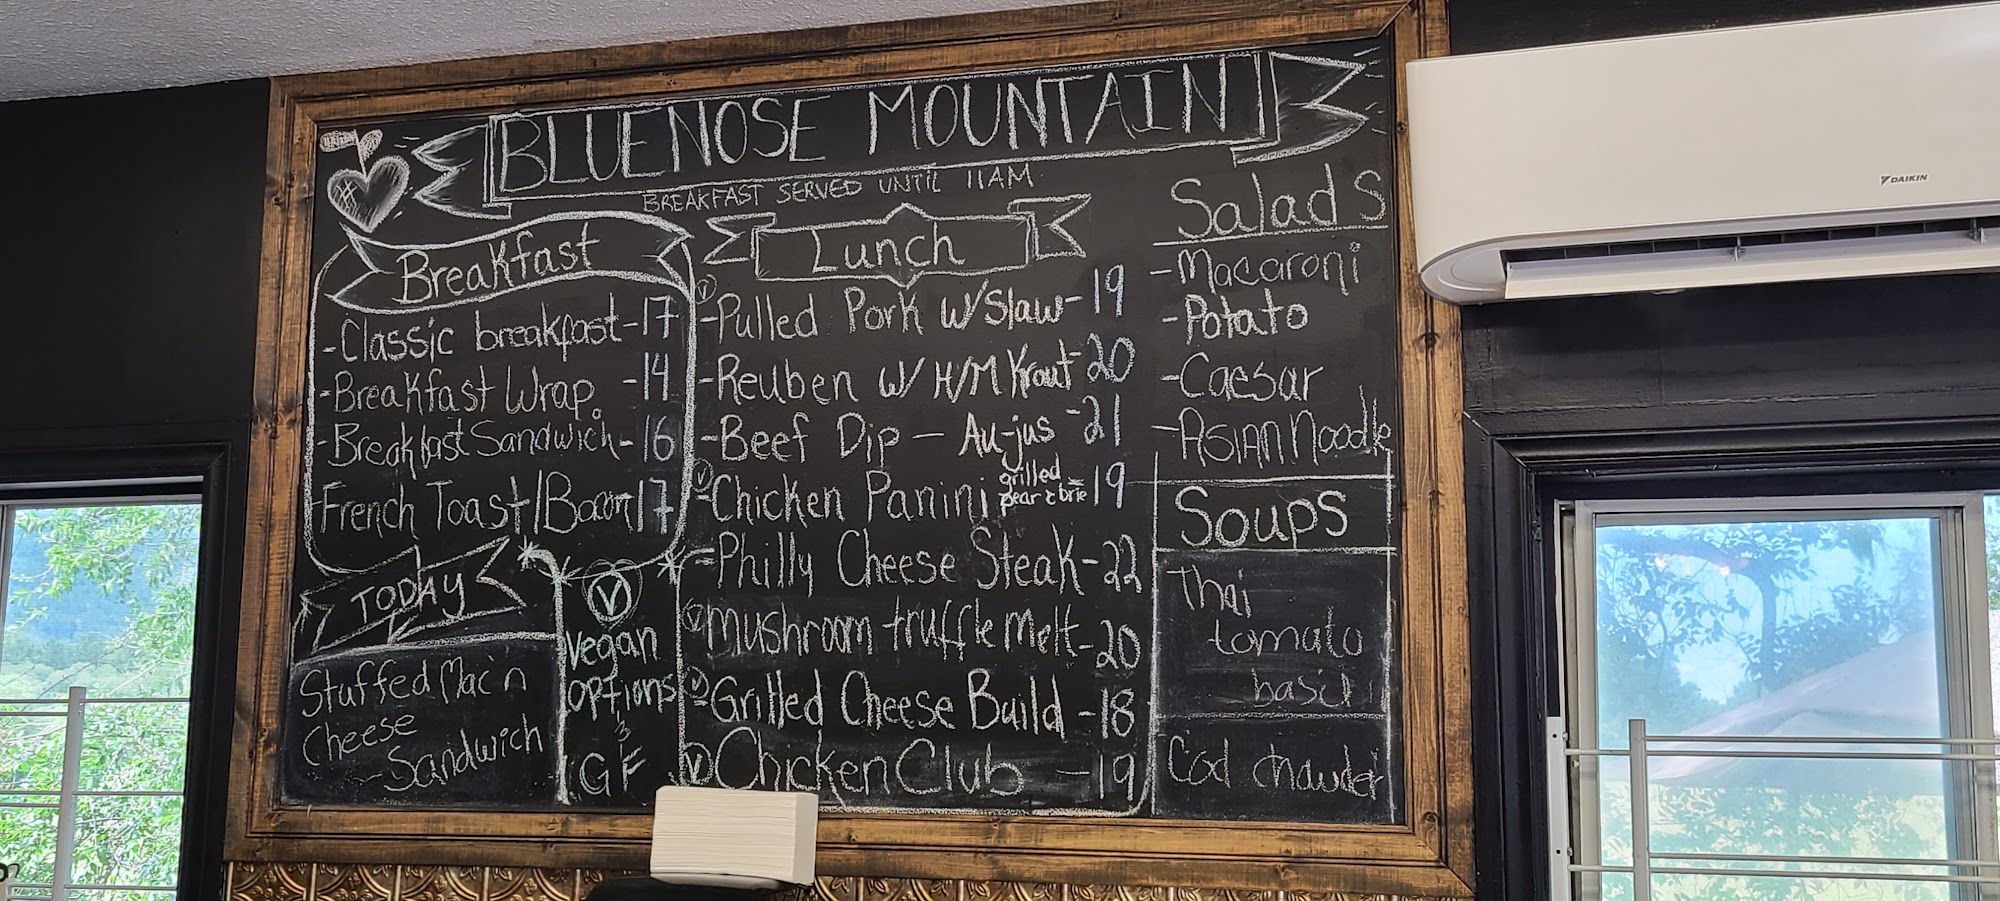 BLUENOSE MOUNTAIN
BREAKFAST SERVED UNTIL 11AM
Breakfast
-Classic breakfast-17
-Breakfast Wrap. -14
-Breakfast Sandwich-16
French Toast/Bacon 17
TODAY
Stuffed Mac'n
Cheese
Sandwich
V
Vegan
options
&
GF
Lunch
V -Pulled Pork w/Slaw- 19
-Reuben w/ H/M Krout-20
-Beef Dip - Au-jus -21
V -Chicken Panini grilled pear & brie 19
-Philly Cheese Steak-22
V mushroom truffle melt-20
V -Grilled Cheese Build -18
V Chicken Club -19
Salads
-Macaroni
-Potato
-Caesar
-ASIAN Noodle
Soups
Thai
tomato
basil
Cod chowder
DAIKIN